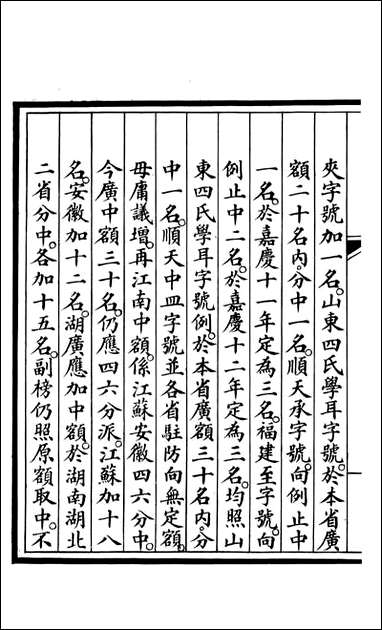 夾字號加一名。山東四氏學耳字號。於本省廣
額二十名內。分中一名。順天承字號。向例止中
一名。於嘉慶十一年定為三名。福建至字號。向
例止中二名。於嘉慶十二年定為三名。均照山
東四氏學耳字號例。於本省廣額三十名內。分
中一名。順天中皿字號並各省駐防向無定額。
毋庸議增。再江南中額。係江蘇安徽四六分中。
今廣中額三十名。仍應四六分派。江蘇加十八
名。安徽加十二名。湖廣應加中額。於湖南湖北
二省分中。各加十五名。副榜仍照原額取中。不